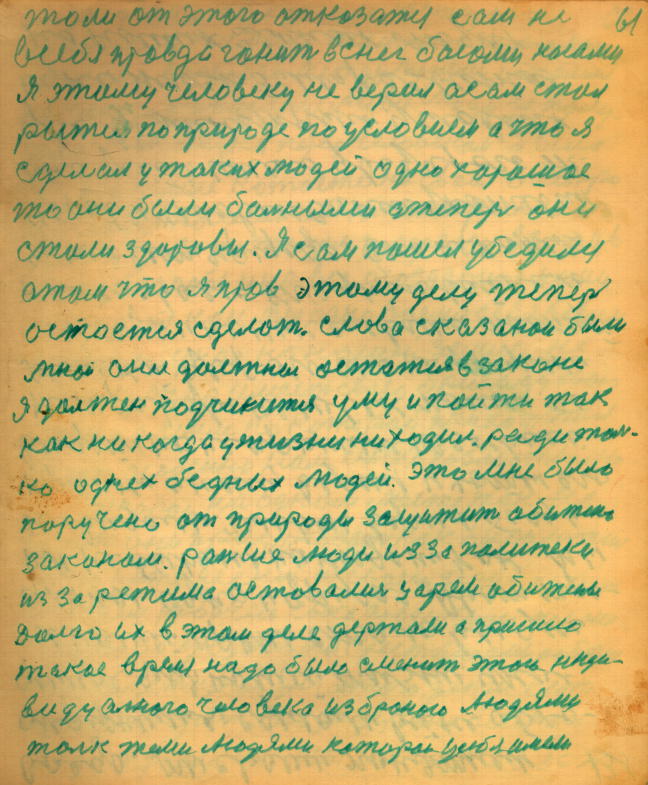 толи от этого откозатя сам не 61
всебя провда гонит вснег босоми ногами
Я этому человеку не верил а сам стал
рытея поприроде по условием а что я
сделал у таких людей одно хорошее
то они были болными атепер они
стали здоровы. Я сам пошел убедилу
атом что я пров этому делу тепер
остается сделот. слова сказаной были
мной они должны остатя в законе
я должен подчинится уму и пойти так
как никогда ужизни ни ходил. ради тол-
ко однех бедных людей. это мне было
поручено от природы защитит обижено
законом. ранше люди из за политеки
из за режима оставалис царем обижены
долго их в этом деле держали а пришло
такое время надо было сменит этои инди-
видуалного человека изброного людями
толк теми людями которои усебя имели